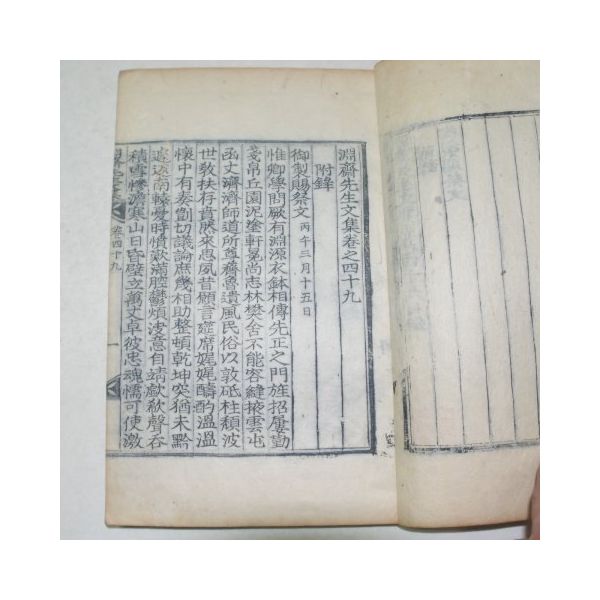 淵齋先生文集卷之四十九
附錄
御製賜祭文 丙午三月十五日
惟卿學問厥有淵源衣鉢相傳先正之門旌招屢勤
戔帛丘園泥塗軒冕尚志林樊舍不能容縫掖雲屯
函丈濟濟師道所尊齋魯遺風民俗以敦砥柱頹波
世敎扶存賁然來思夙昔願言筵席娓娓酬酌溫溫
懷中有奏剴切議論庶幾相助整頓乾坤突猶未黔
遄返南轅憂時憤歎滿腔鬱煩決意自靖歔欷聲吞
積雪慘澹寒山日昏壁立萬丈卓彼忠魂憍可使激
卷四十九
一